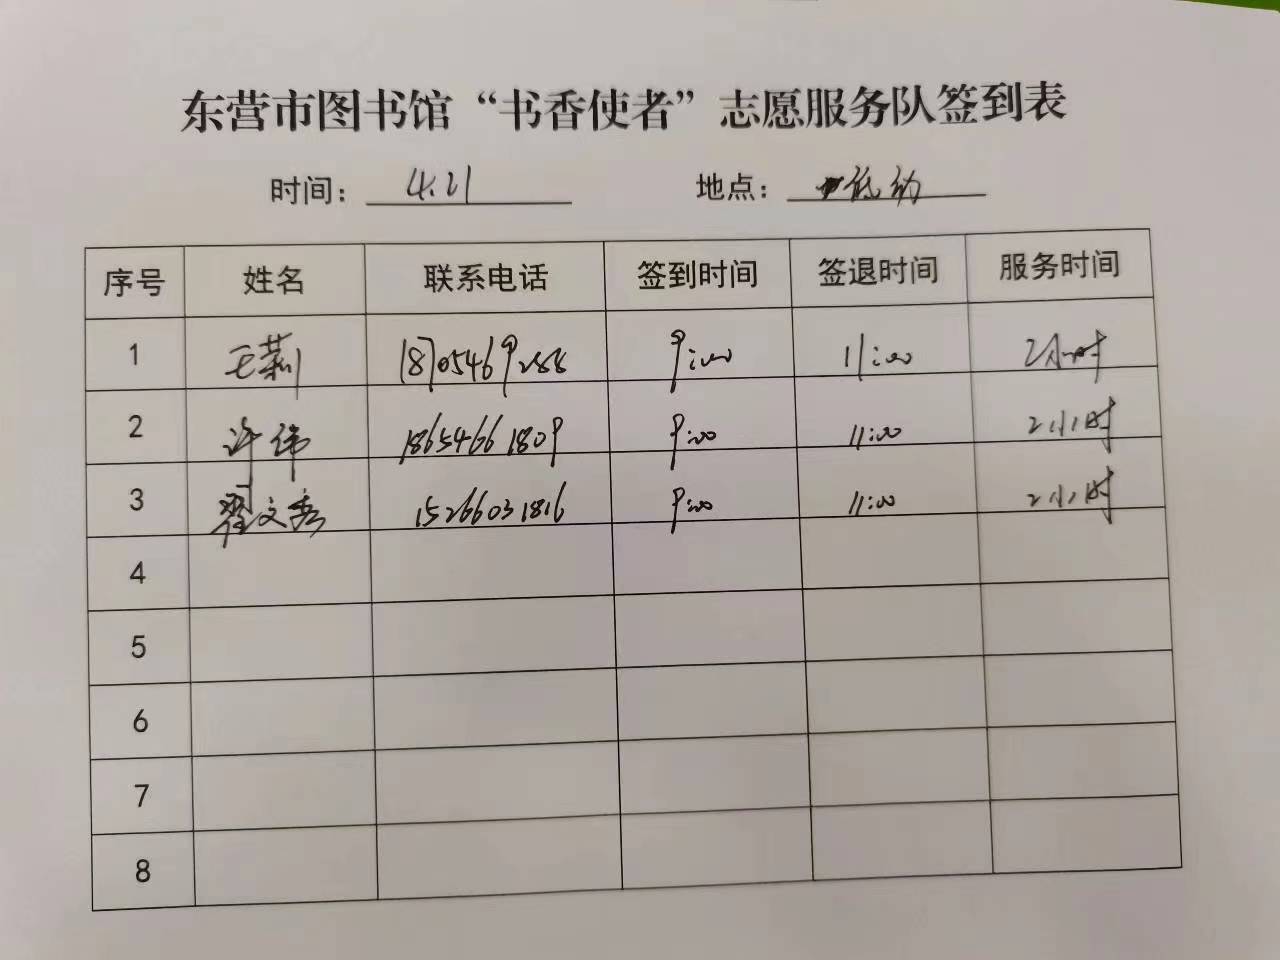 东营市图书馆“书香使者”志愿服务队签到表
时间： 4.21 地点： 低幼
序号 姓名 联系电话 签到时间 签退时间 服务时间
1 王莉 18705469288 9:00 11:00 2小时
2 许伟 18654661809 9:00 11:00 2小时
3 翟文秀 15266031816 9:00 11:00 2小时
4
5
6
7
8